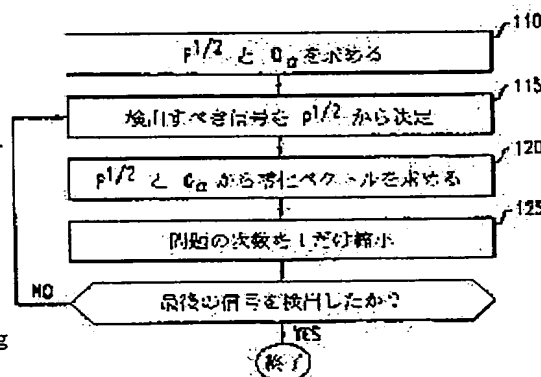 110
P1/2 と Qα を求める
115
検出すべき信号を P1/2 から決定
120
P1/2 と Qα から零化ベクトルを求める
125
問題の次数を1だけ縮小
NO
最後の信号を検出したか?
YES
終了
g